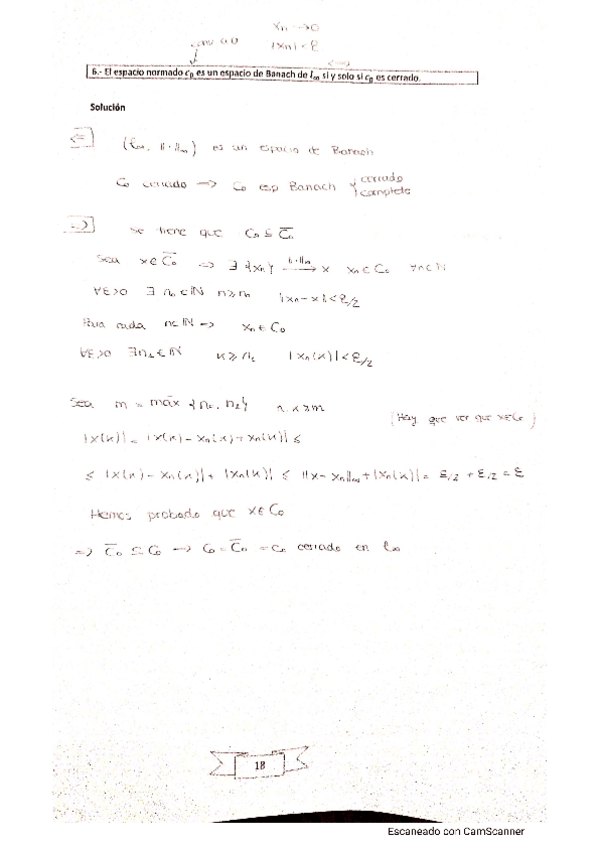 xn → 0
conv a 0 |xn| < ε
6.- El espacio normado c₀ es un espacio de Banach de l∞ si y solo si c₀ es cerrado.
Solución
<=] (l∞, ||·||∞) es un espacio de Banach
C₀ cerrado → C₀ esp Banach { cerrado
completo
=>] Se tiene que C₀ ⊆ C̄₀
Sea x ∈ C̄₀ → ∃ {xn} —||·||∞→ x xn ∈ C₀ ∀n∈ℕ
∀ε>0 ∃ n₀ ∈ ℕ n ≥ n₀ |xn - x| < ε/2
Para cada n∈ℕ → xn ∈ C₀
∀ε>0 ∃n₂ ∈ ℕ k ≥ n₂ |xn(k)| < ε/2
Sea m = máx {n₀, n₂} n, k ≥ m
(Hay que ver que x∈C₀)
|x(k)| = |x(k) - xn(k) + xn(k)| ≤
≤ |x(k) - xn(k)| + |xn(k)| ≤ ||x - xn||∞ + |xn(k)| = ε/2 + ε/2 = ε
Hemos probado que x ∈ C₀
=> C̄₀ ⊆ C₀ → C₀ = C̄₀ = C₀ cerrado en l∞
18
Escaneado con CamScanner